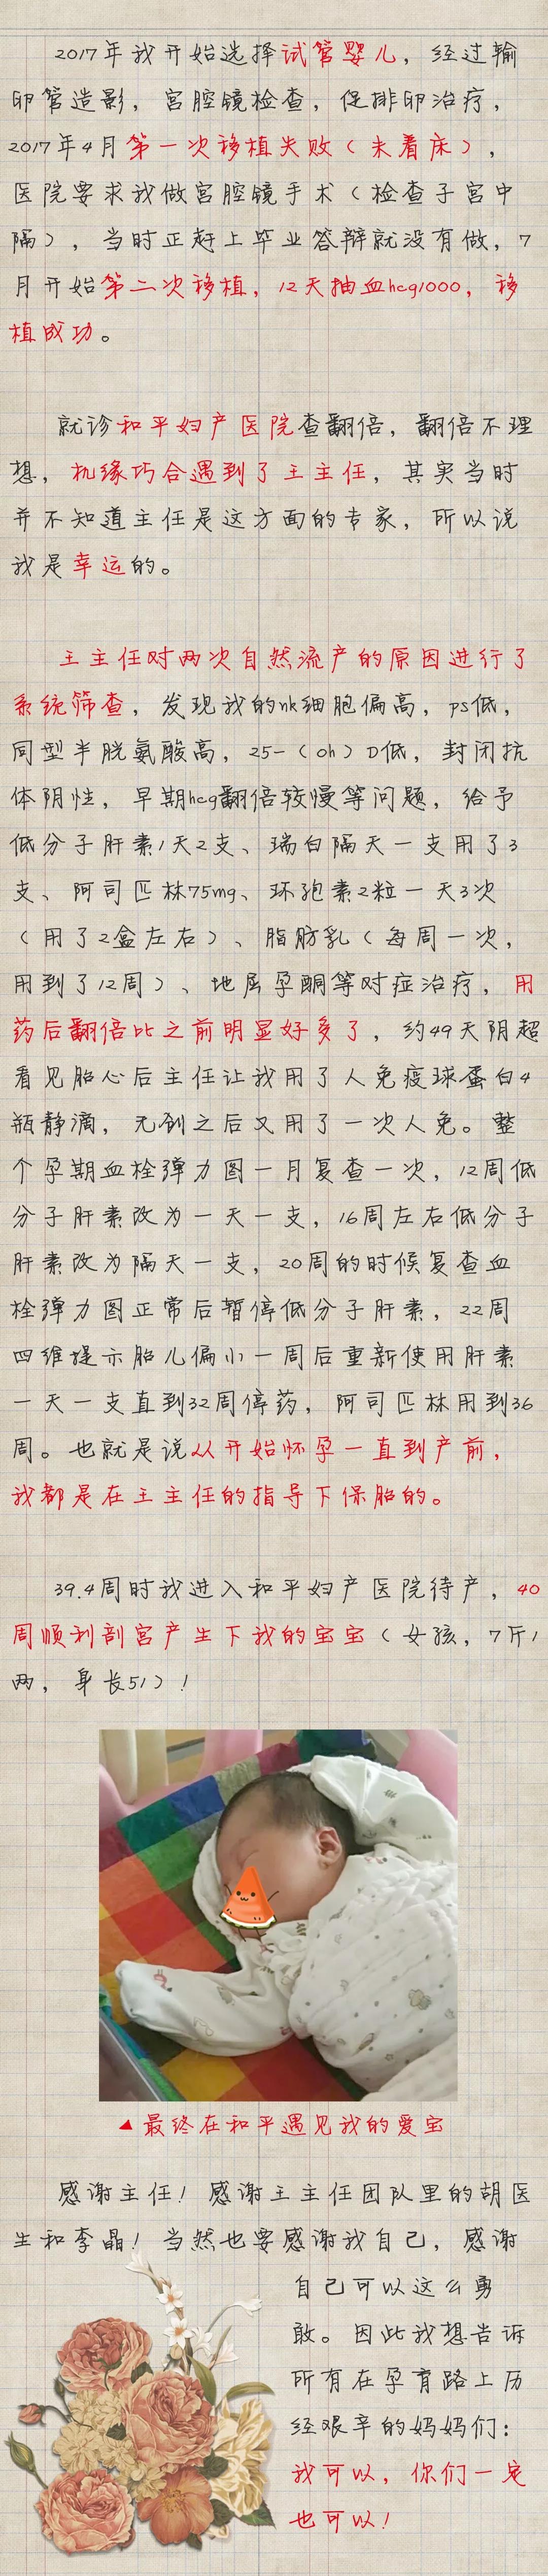 2017年我开始选择试管婴儿，经过输
卵管造影，宫腔镜检查，促排卵治疗，
2017年4月第一次移植失败（未着床），
医院要求我做宫腔镜手术（检查子宫中
隔），当时正赶上毕业答辩就没有做，7
月开始第二次移植，12天抽血hcg1000，移
植成功。
就诊和平妇产医院查翻倍，翻倍不理
想，机缘巧合遇到了王主任，其实当时
并不知道主任是这方面的专家，所以说
我是幸运的。
王主任对两次自然流产的原因进行了
系统筛查，发现我的nk细胞偏高，ps低，
同型半胱氨酸高，25-（oh）D低，封闭抗
体阴性，早期hcg翻倍较慢等问题，给予
低分子肝素1天2支、瑞白隔天一支用了3
支、阿司匹林75mg、环孢素2粒一天3次
（用了2盒左右）、脂肪乳（每周一次，
用到了12周）、地屈孕酮等对症治疗，用
药后翻倍比之前明显好多了，约49天阴超
看见胎心后主任让我用了人免疫球蛋白4
瓶静滴，无创之后又用了一次人免。整
个孕期血栓弹力图一月复查一次，12周低
分子肝素改为一天一支，16周左右低分子
肝素改为隔天一支，20周的时候复查血
栓弹力图正常后暂停低分子肝素，22周
四维提示胎儿偏小一周后重新使用肝素
一天一支直到32周停药，阿司匹林用到36
周。也就是说从开始怀孕一直到产前，
我都是在王主任的指导下保胎的。
39.4周时我进入和平妇产医院待产，40
周顺利剖宫产生下我的宝宝（女孩，7斤1
两，身长51）！
▲最终在和平遇见我的爱宝
感谢主任！感谢王主任团队里的胡医
生和李晶！当然也要感谢我自己，感谢
自己可以这么勇
敢。因此我想告诉
所有在孕育路上历
经艰辛的妈妈们：
我可以，你们一定
也可以！